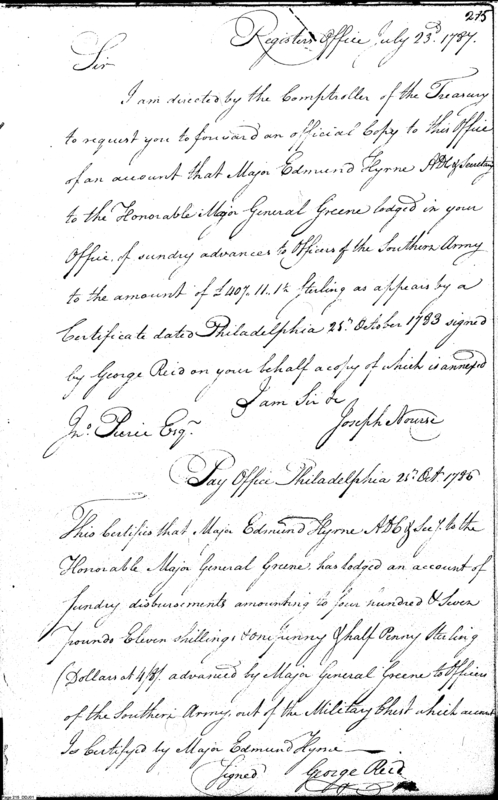 215
Registers Office July 23d. 1787.
Sir
I am directed by the Comptroller of the Treasury
to request you to forward an official Copy to this Office
of an account that Major Edmund Hyrne ADC & Secretary
to the Honorable Major General Greene lodged in your
Office, of sundry advances to Officers of the Southern Army
to the amount of £407. 11. 1½ Sterling as appears by a
Certificate dated Philadelphia 25th October 1783 signed
by George Reid on your behalf a copy of which is annexed
I am Sir &c
Jno. Pierce Esqr.
Joseph Nourse
Pay Office Philadelphia 25th Oct. 1786
This Certifies that Major Edmund Hyrne ADC & Secy. to the
Honorable Major General Greene, has lodged an account of
Sundry disbursements amounting to four hundred & Seven
pounds Eleven shillings & one penny & half Penny Sterling
(Dollars at 4/8). advanced by Major General Greene to Officers
of the Southern Army, out of the Military Chest which account
Is Certifyd by Major Edmund Hyrne
Signed George Reid